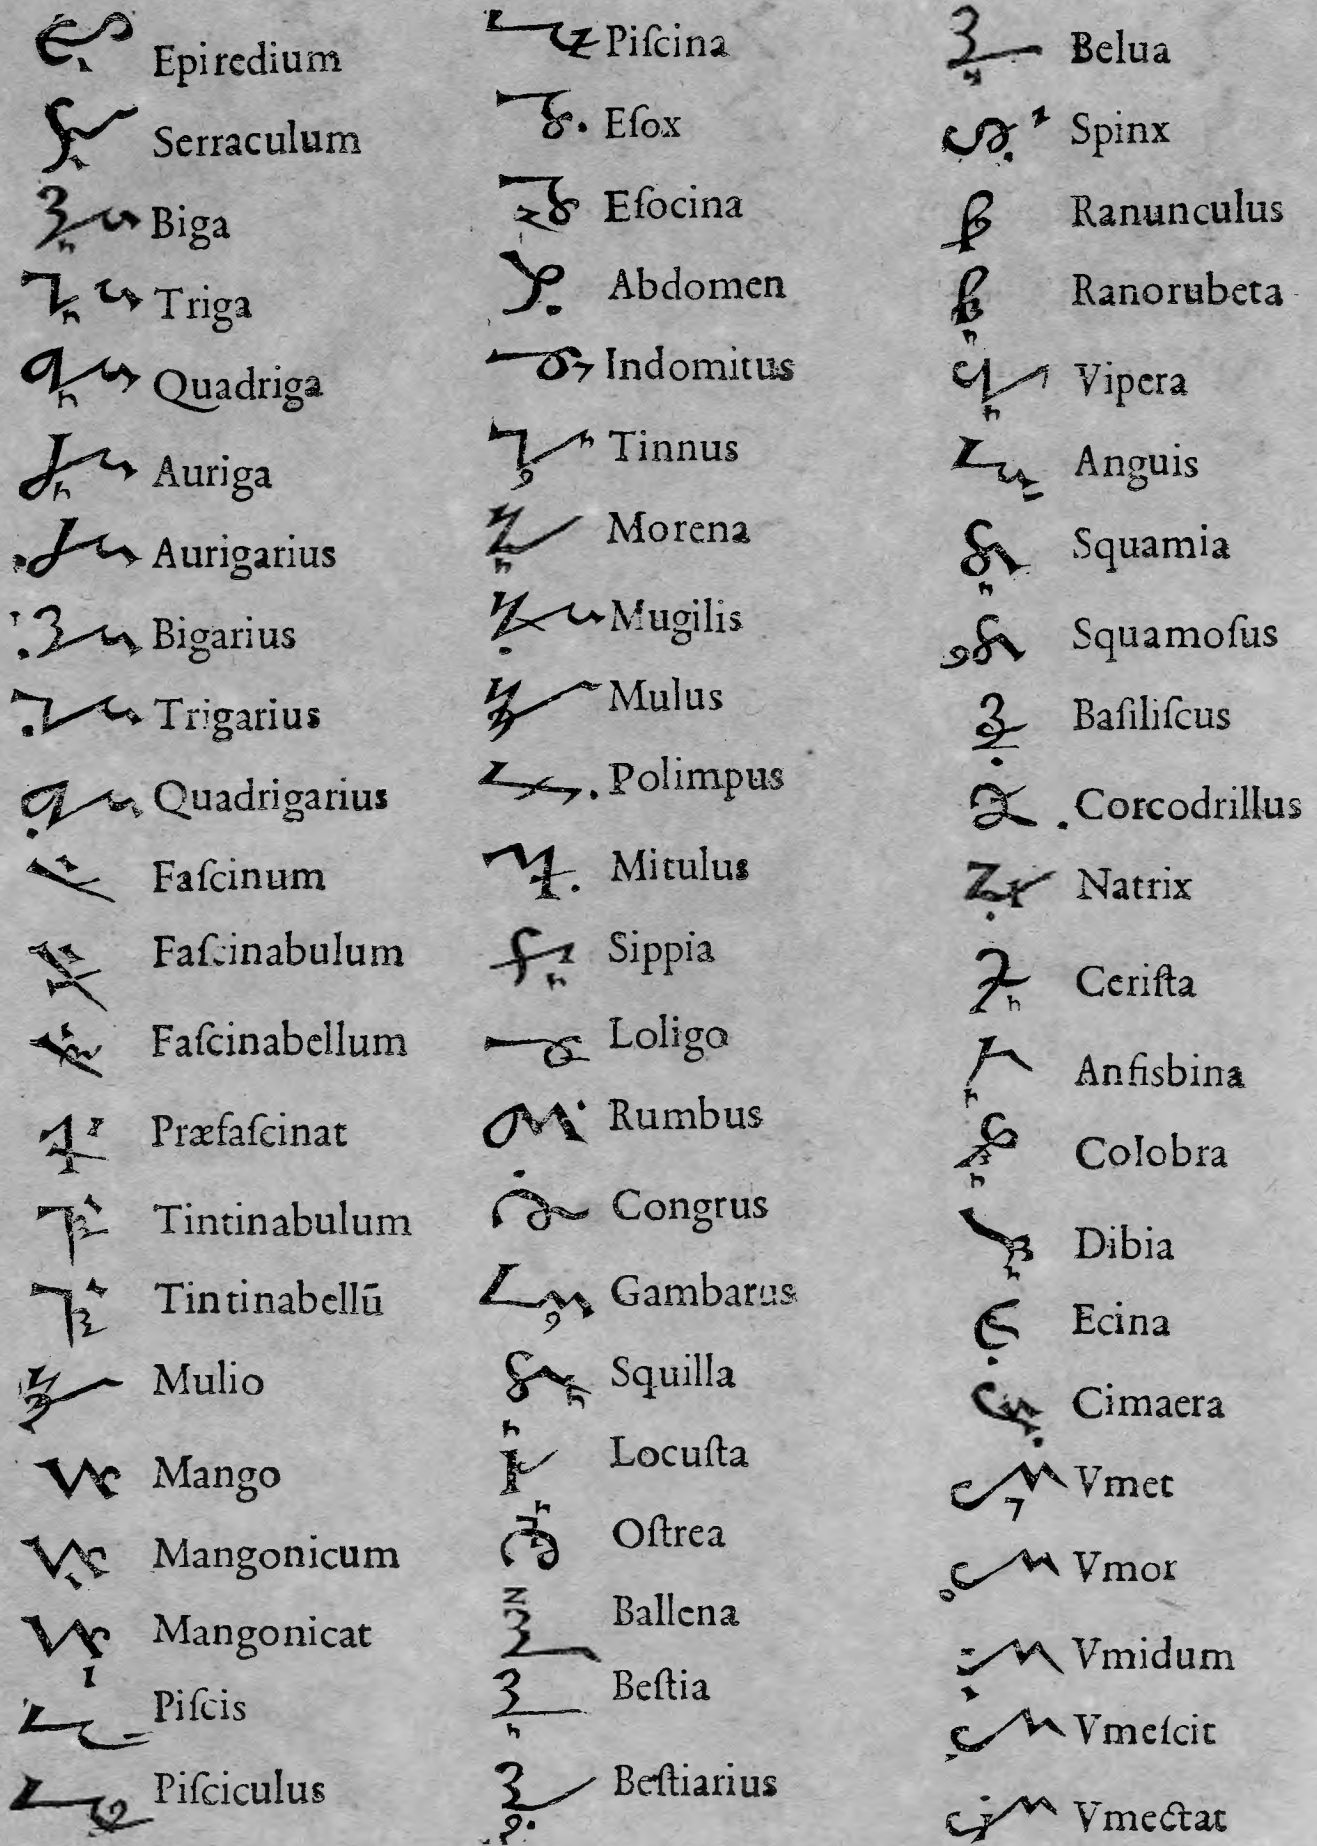 Epiredium
Serraculum
Biga
Triga
Quadriga
Auriga
Aurigarius
Bigarius
Trigarius
Quadrigarius
Faſcinum
Faſcinabulum
Faſcinabellum
Præfaſcinat
Tintinabulum
Tintinabellū
Mulio
Mango
Mangonicum
Mangonicat
Piſcis
Piſciculus
Piſcina
Eſox
Eſocina
Abdomen
Indomitus
Tinnus
Morena
Mugilis
Mulus
Polimpus
Mitulus
Sippia
Loligo
Rumbus
Congrus
Gambarus
Squilla
Locuſta
Oſtrea
Ballena
Beſtia
Beſtiarius
Belua
Spinx
Ranunculus
Ranorubeta
Vipera
Anguis
Squamia
Squamoſus
Baſiliſcus
Corcodrillus
Natrix
Ceriſta
Anfisbina
Colobra
Dibia
Ecina
Cimaera
Vmet
Vmor
Vmidum
Vmeſcit
Vmectat